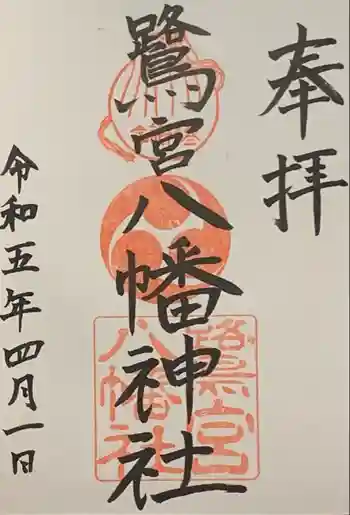 奉拝
鷺宮八幡神社
令和五年四月一日
鷺宮
八幡社